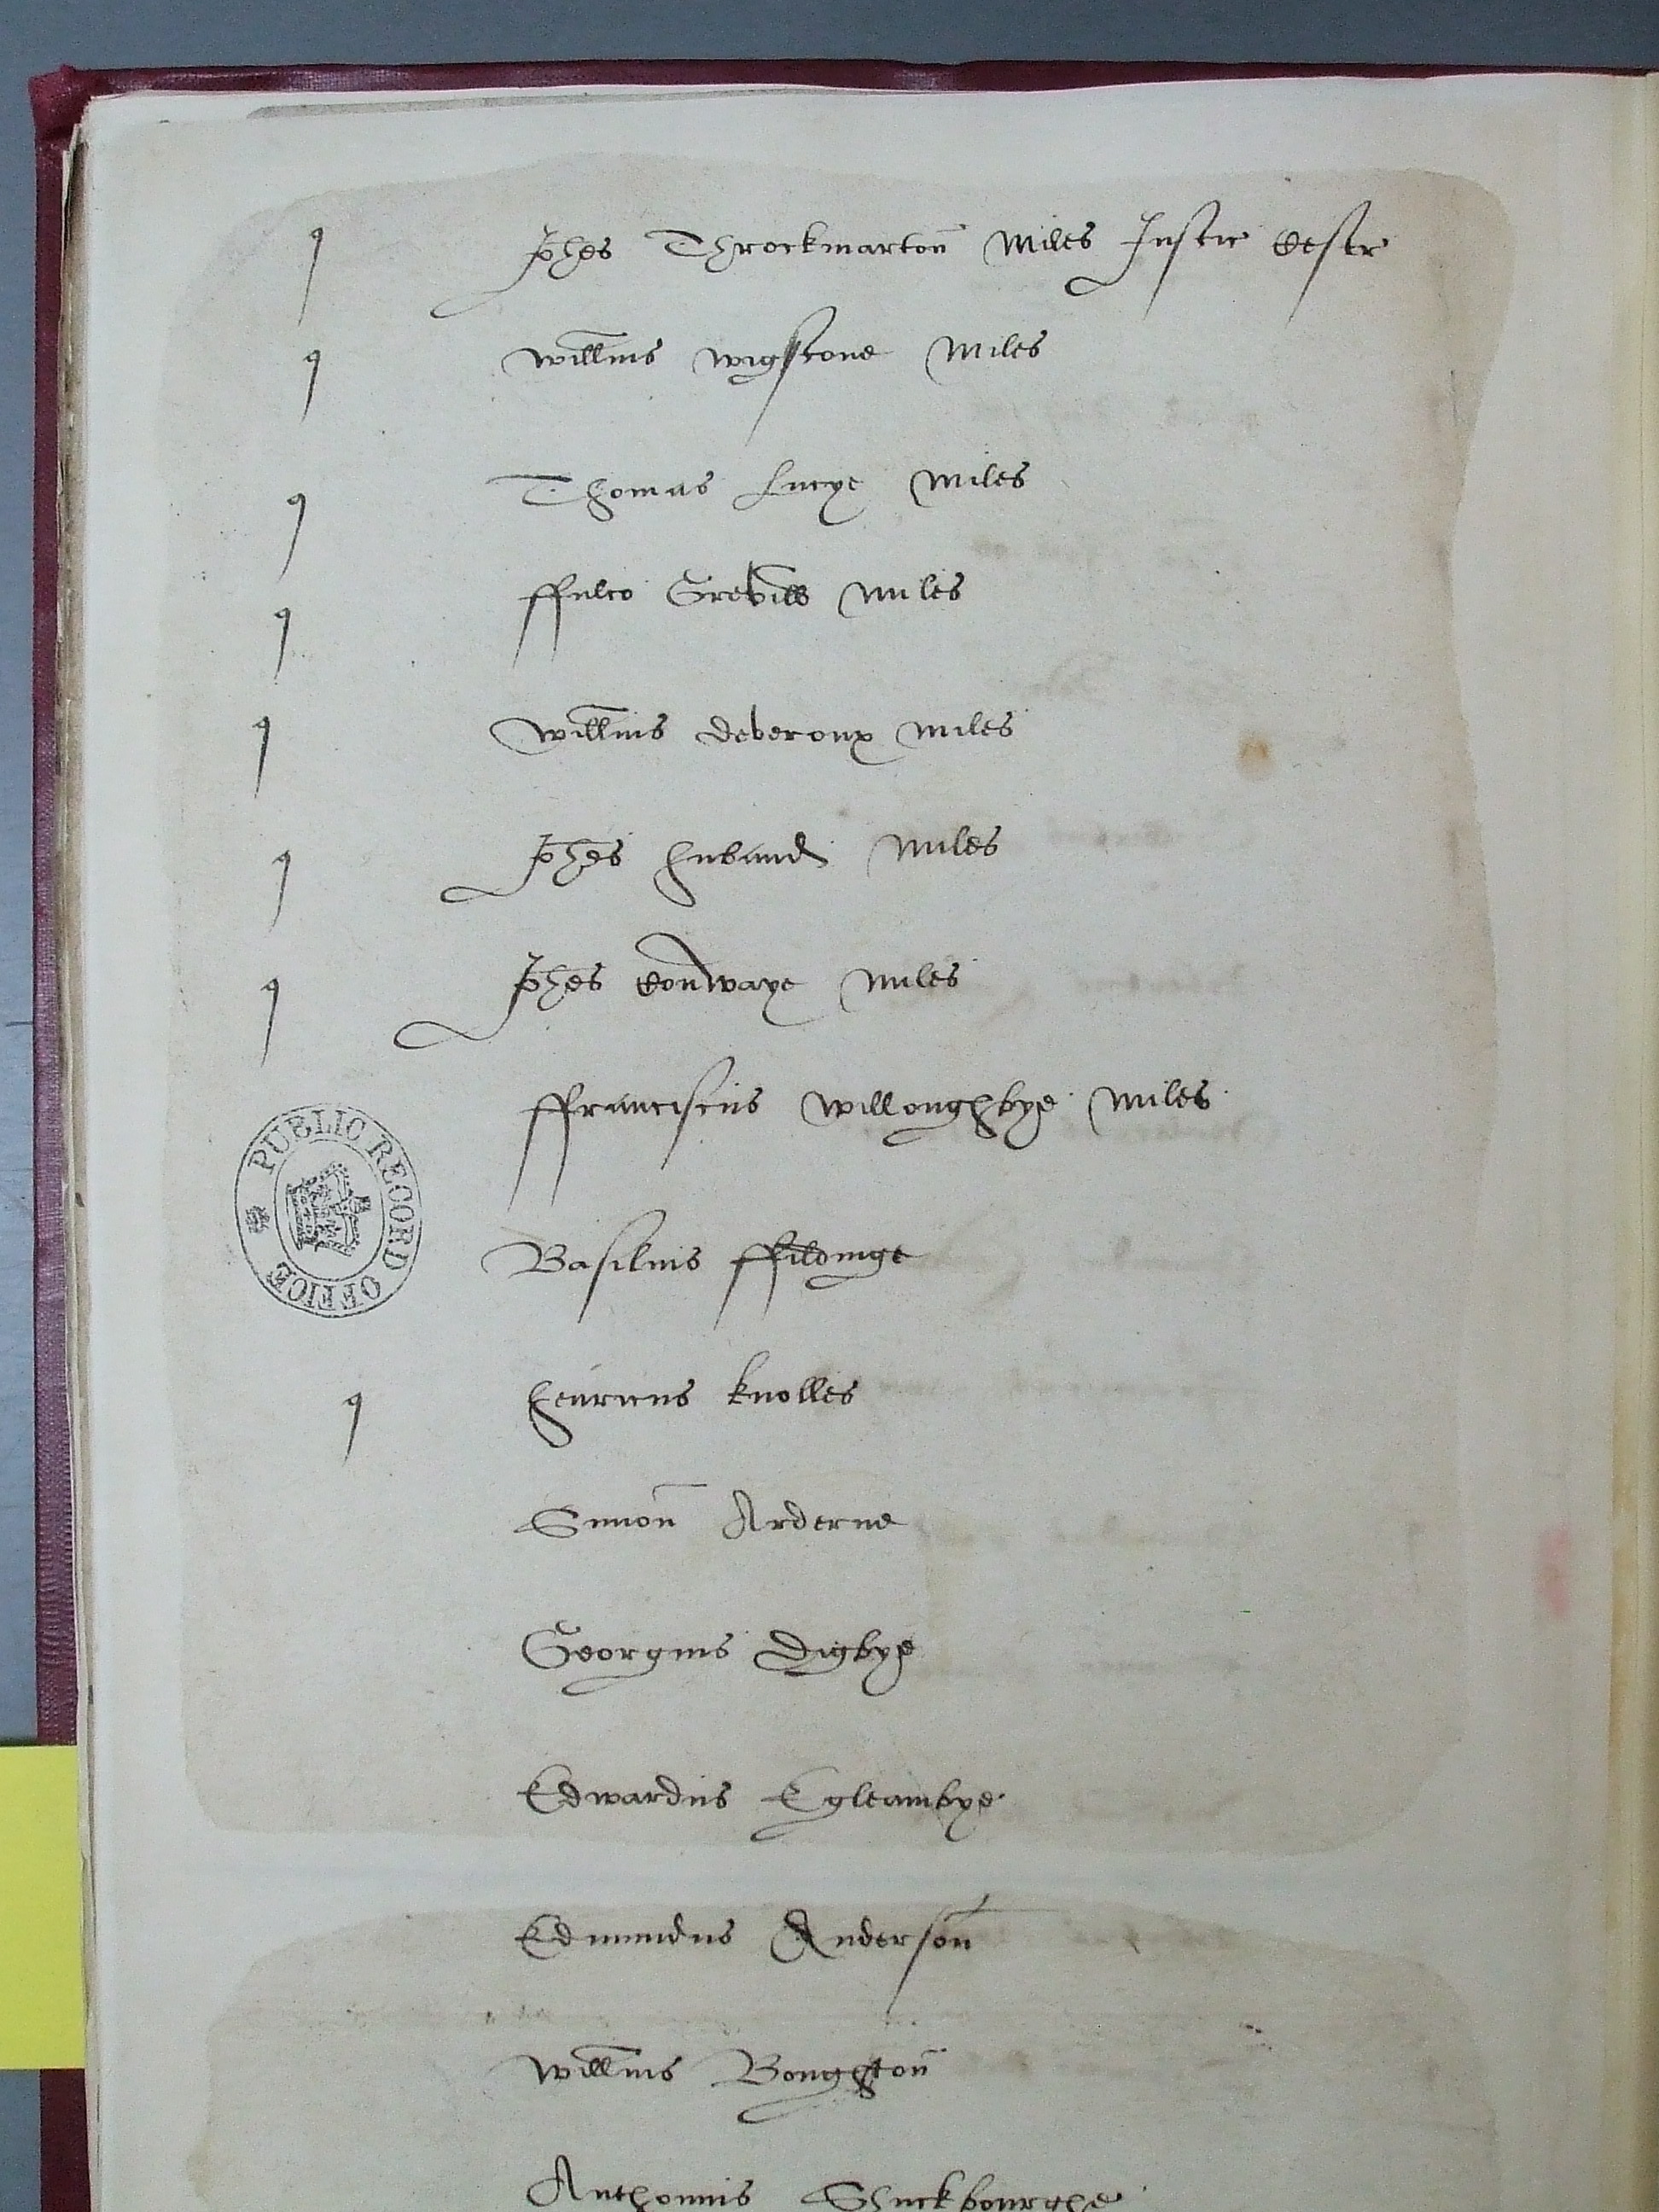 q Johes Throckmarton Miles Justic Cestr
q Willms Wigstone Miles
q Thomas Lucye Miles
q ffulco Grevill Miles
q Willms deveroux Miles
q Johes huband Miles
q Johes Conwaye Miles
ffranciscus Willoughbye Miles
PUBLIC RECORD OFFICE
Basilius ffildinge
q henricus knolles
Simon Arderne
Georgius Digbye
Edwardus Egleambye
Edmundus Anderson
Willms Boughton
Anthonius Shuckbourghe